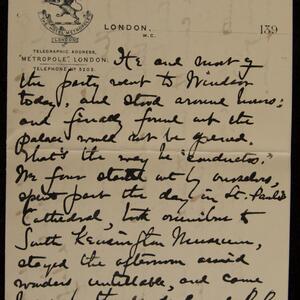 LONDON.
W.C.
139
LONDON
TELEGRAPHIC ADDRESS,
"METROPOLE", LONDON.
TELEPHONE Nº 5203.
He and most of
the party went to Windsor
today, and stood around hours;
and finally found out the
palace would not be opened.
That's the way he "conducts".
We four started out by ourselves,
spent part the day in St. Paul's
Cathedral, took omnibus to
South Kensington Museum,
stayed the afternoon around
wonders untellable, and came